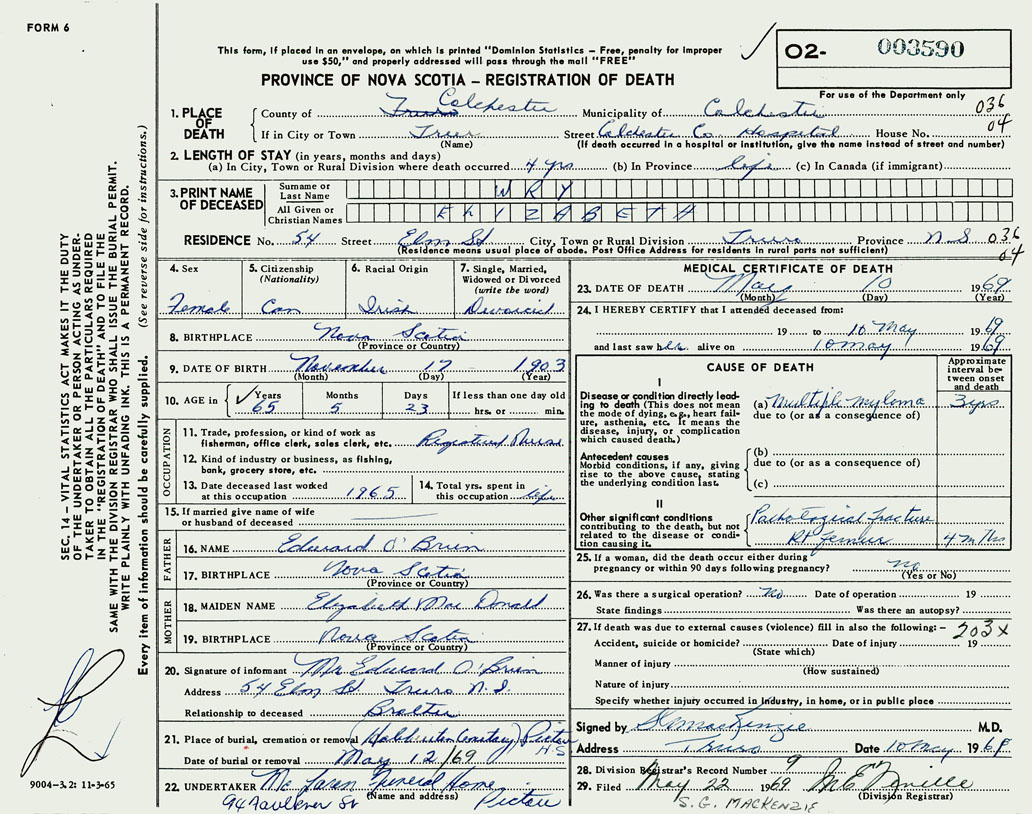 FORM 6
This form, if placed in an envelope, on which is printed "Dominion Statistics – Free, penalty for improper
use $50," and properly addressed will pass through the mail "FREE"
O2- 003590
For use of the Department only
PROVINCE OF NOVA SCOTIA – REGISTRATION OF DEATH
036
04
1. PLACE OF DEATH
County of Truro Colchester Municipality of Colchester
If in City or Town Truro Street Colchester Co. Hospital House No.
(Name) (If death occurred in a hospital or institution, give the name instead of street and number)
2. LENGTH OF STAY (in years, months and days)
(a) In City, Town or Rural Division where death occurred 4 yrs (b) In Province life (c) In Canada (if immigrant)
3. PRINT NAME OF DECEASED
Surname or Last Name WRY
All Given or Christian Names ELIZABETH
RESIDENCE No. 54 Street Elm St City, Town or Rural Division Truro Province N-S 036
(Residence means usual place of abode. Post Office Address for residents in rural parts not sufficient) 04
4. Sex
Female
5. Citizenship
(Nationality)
Can
6. Racial Origin
Irish
7. Single, Married,
Widowed or Divorced
(write the word)
Divorced
8. BIRTHPLACE Nova Scotia
(Province or Country)
9. DATE OF BIRTH November 17 1903
(Month) (Day) (Year)
10. AGE in Years 65 Months 5 Days 23 If less than one day old
hrs. or min.
OCCUPATION
11. Trade, profession, or kind of work as
fisherman, office clerk, sales clerk, etc. Registered Nurse
12. Kind of industry or business, as fishing,
bank, grocery store, etc.
13. Date deceased last worked
at this occupation 1965
14. Total yrs. spent in
this occupation life
15. If married give name of wife
or husband of deceased
FATHER
16. NAME Edward O'Brien
17. BIRTHPLACE Nova Scotia
(Province or Country)
MOTHER
18. MAIDEN NAME Elizabeth Mac Donald
19. BIRTHPLACE Nova Scotia
(Province or Country)
20. Signature of informant Mr. Edward O'Brien
Address 54 Elm St. Truro N.S.
Relationship to deceased Brother
21. Place of burial, cremation or removal Pictou
N.S.
Date of burial or removal May 12/69
22. UNDERTAKER Mc Laren Funeral Home
(Name and address)
94 Faulkner St Pictou
MEDICAL CERTIFICATE OF DEATH
23. DATE OF DEATH May 10 1969
(Month) (Day) (Year)
24. I HEREBY CERTIFY that I attended deceased from:
19 to 10 May 1969
and last saw her alive on 10 may 1969
CAUSE OF DEATH
Approximate
interval be-
tween onset
and death
I
Disease or condition directly lead-
ing to death (This does not mean
the mode of dying, e.g., heart fail-
ure, asthenia, etc. It means the
disease, injury, or complication
which caused death.)
(a) Multiple myeloma 3 yrs
due to (or as a consequence of)
Antecedent causes
Morbid conditions, if any, giving
rise to the above cause, stating
the underlying condition last.
(b)
due to (or as a consequence of)
(c)
II
Other significant conditions
contributing to the death, but not
related to the disease or condi-
tion causing it.
Pathological fracture
Rt femur 4 mths
25. If a woman, did the death occur either during
pregnancy or within 90 days following pregnancy? no
(Yes or No)
26. Was there a surgical operation? No Date of operation 19
State findings Was there an autopsy?
27. If death was due to external causes (violence) fill in also the following: – 203x
Accident, suicide or homicide? Date of injury 19
(State which)
Manner of injury
(How sustained)
Nature of injury
Specify whether injury occurred in industry, in home, or in public place
Signed by S G MacKenzie M.D.
Address Truro Date 10 May 1969
28. Division Registrar's Record Number 9
29. Filed May 22 1969
(Division Registrar)
S.G. MACKENZIE
SEC. 14 – VITAL STATISTICS ACT MAKES IT THE DUTY
OF THE UNDERTAKER OR PERSON ACTING AS UNDER-
TAKER TO OBTAIN ALL THE PARTICULARS REQUIRED
IN THE "REGISTRATION OF DEATH" AND TO FILE THE
SAME WITH THE DIVISION REGISTRAR WHO SHALL ISSUE THE BURIAL PERMIT.
WRITE PLAINLY WITH UNFADING INK. THIS IS A PERMANENT RECORD.
Every item of information should be carefully supplied. (See reverse side for instructions.)
9004-3.2: 11-3-65